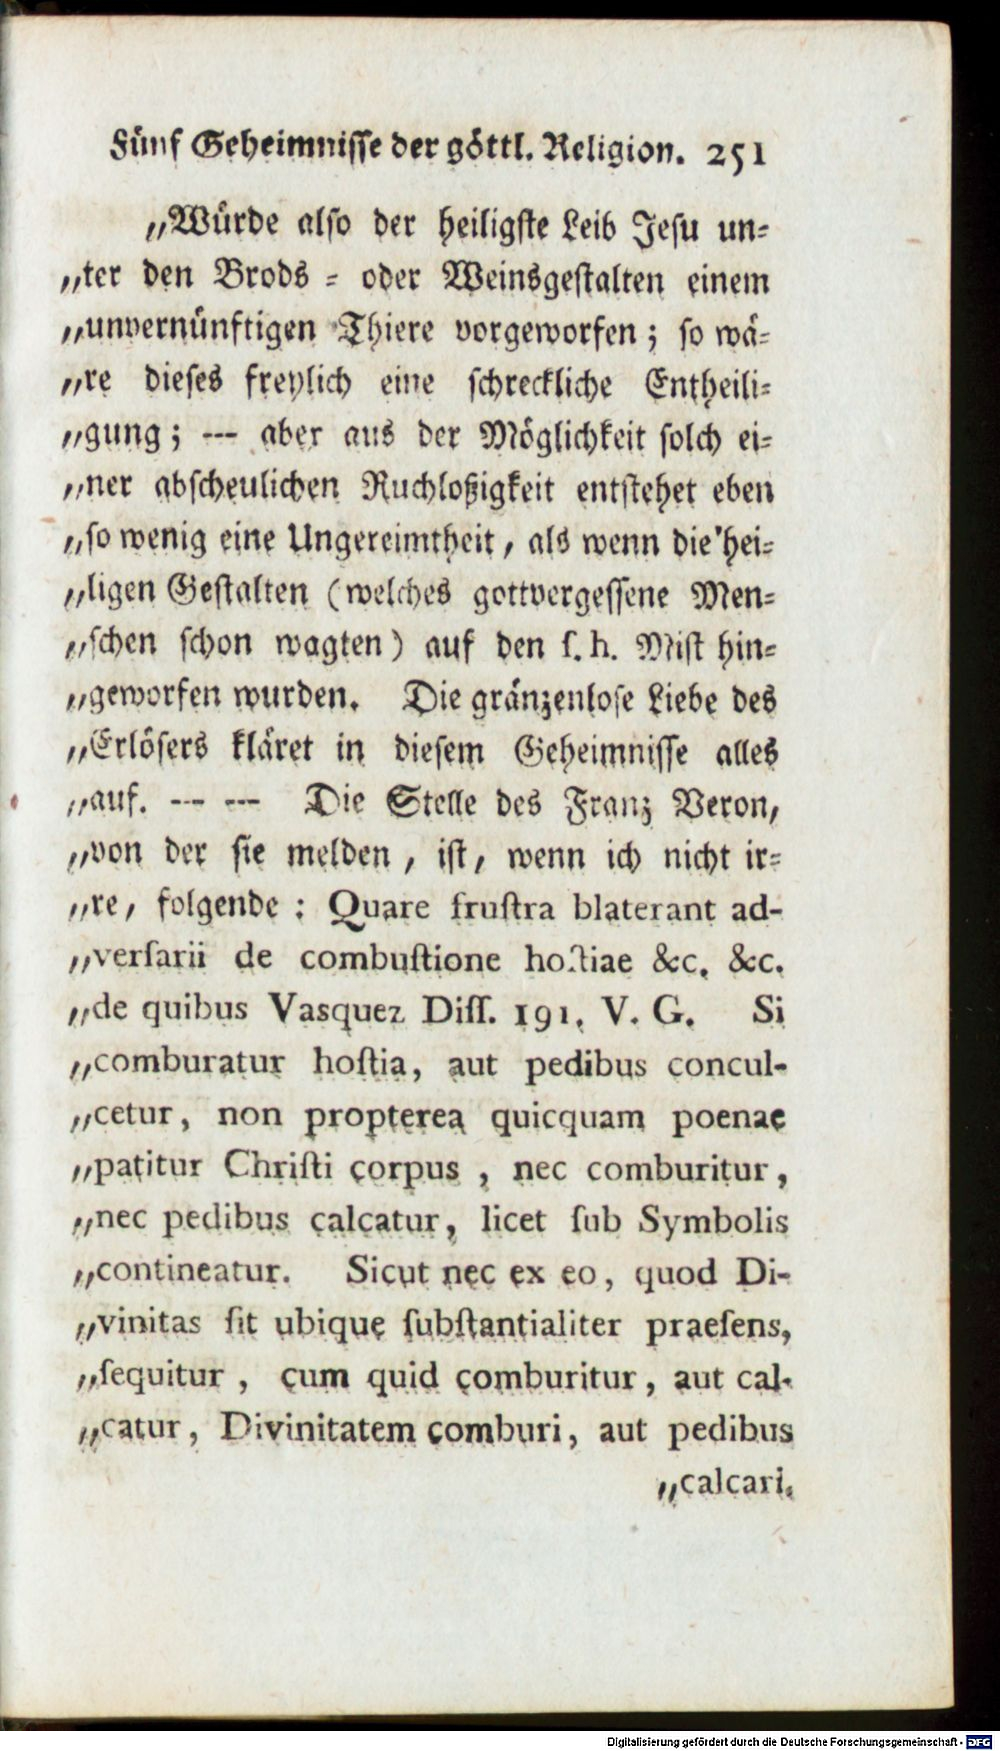 Fünf Geheimnisse der göttl. Religion. 251
„Würde also der heiligste Leib Jesu un-
„ter den Brods - oder Weinsgestalten einem
„unvernünftigen Thiere vorgeworfen; so wä-
„re dieses freylich eine schreckliche Entheili-
„gung; --- aber aus der Möglichkeit solch ei-
„ner abscheulichen Ruchloßigkeit entstehet eben
„so wenig eine Ungereimtheit, als wenn die hei-
„ligen Gestalten (welches gottvergessene Men-
„schen schon wagten) auf den s. h. Mist hin-
„geworfen wurden. Die gränzenlose Liebe des
„Erlösers kläret in diesem Geheimnisse alles
„auf. --- --- Die Stelle des Franz Veron,
„von der sie melden, ist, wenn ich nicht ir-
„re, folgende: Quare frustra blaterant ad-
„versarii de combustione hostiae &c. &c.
„de quibus Vasquez Diss. 191. V. G. Si
„comburatur hostia, aut pedibus concul-
„cetur, non propterea quicquam poenae
„patitur Christi corpus, nec comburitur,
„nec pedibus calcatur, licet sub Symbolis
„contineatur. Sicut nec ex eo, quod Di-
„vinitas sit ubique substantialiter praesens,
„sequitur, cum quid comburitur, aut cal-
„catur, Divinitatem comburi, aut pedibus
„calcari.
Digitalisierung gefördert durch die Deutsche Forschungsgemeinschaft - DFG